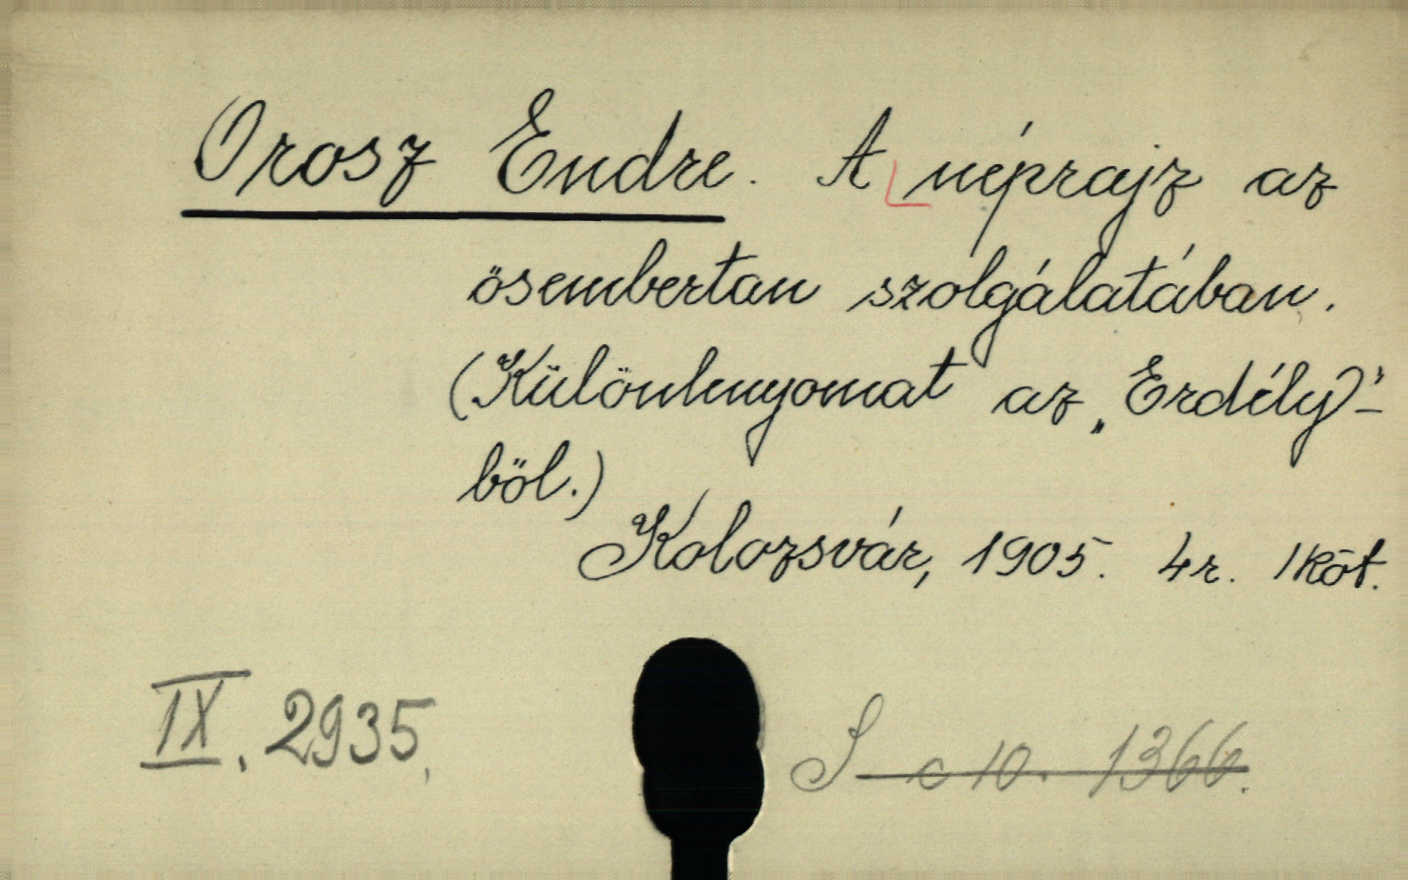 Orosz Endre. A néprajz az
ösembertan szolgálatában.
(Különlenyomat az „Erdély”-
böl.)
Kolozsvár, 1905. 4r. 1 köt.
IX. 2935.
S c 10. 1366.